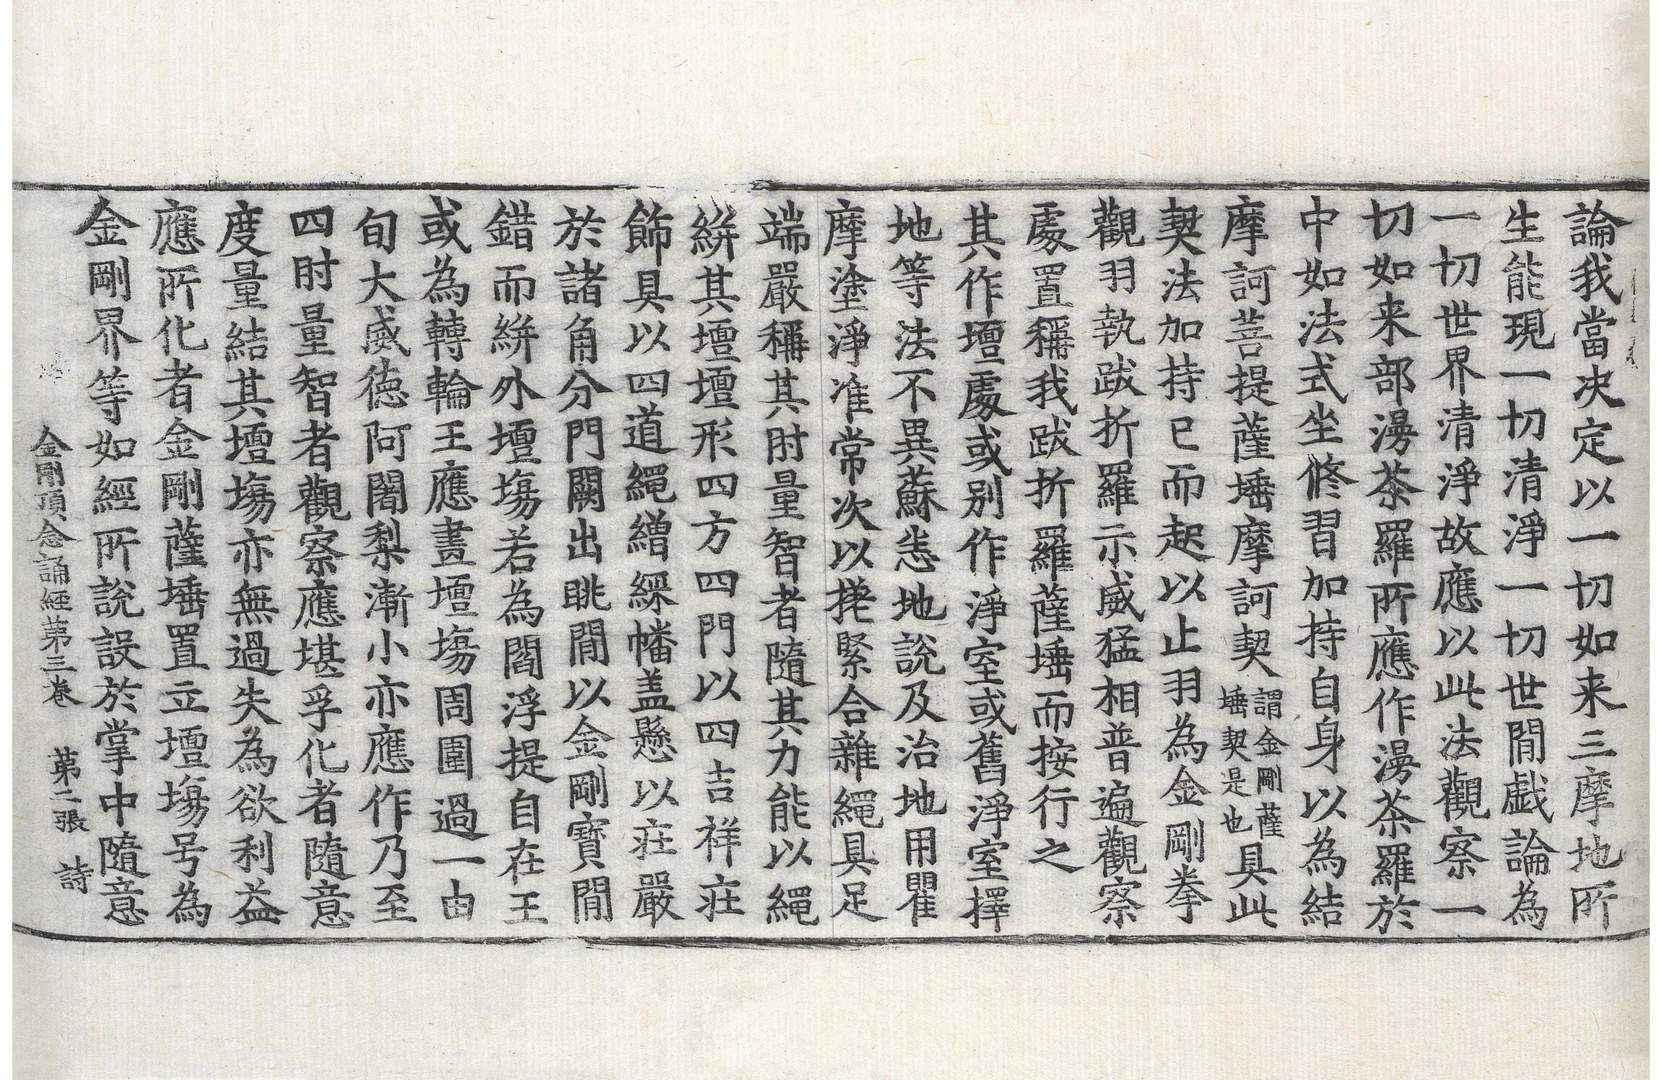 論我當决定以一切如来三摩地所
生能現一切清淨一切世閒戱論為
一切世界清淨故應以此法觀察一
切如来部漫荼羅所應作漫荼羅於
中如法式坐修習加持自身以為結
摩訶菩提薩埵摩訶契謂金剛薩埵契是也具此
契法加持已而起以止羽為金剛拳
觀羽執跋折羅示威猛相普遍觀察
處置稱我跋折羅薩埵而按行之
其作壇處或别作淨室或舊淨室擇
地等法不異蘇悉地說及治地用瞿
摩塗淨准常次以搓緊合雜繩具足
端嚴稱其肘量智者隨其力能以繩
絣其壇壇形四方四門以四吉祥莊
飾具以四道繩繒綵幡盖懸以莊嚴
於諸角分門闕出眺閒以金剛寶閒
錯而絣外壇塲若為閻浮提自在王
或為轉輪王應畫壇塲周圍過一由
旬大威德阿闍梨漸小亦應作乃至
四肘量智者觀察應堪孚化者隨意
度量結其壇塲亦無過失為欲利益
應所化者金剛薩埵置立壇塲号為
金剛界等如經所說設於掌中隨意
金剛頂念誦經第三卷　第二張　詩